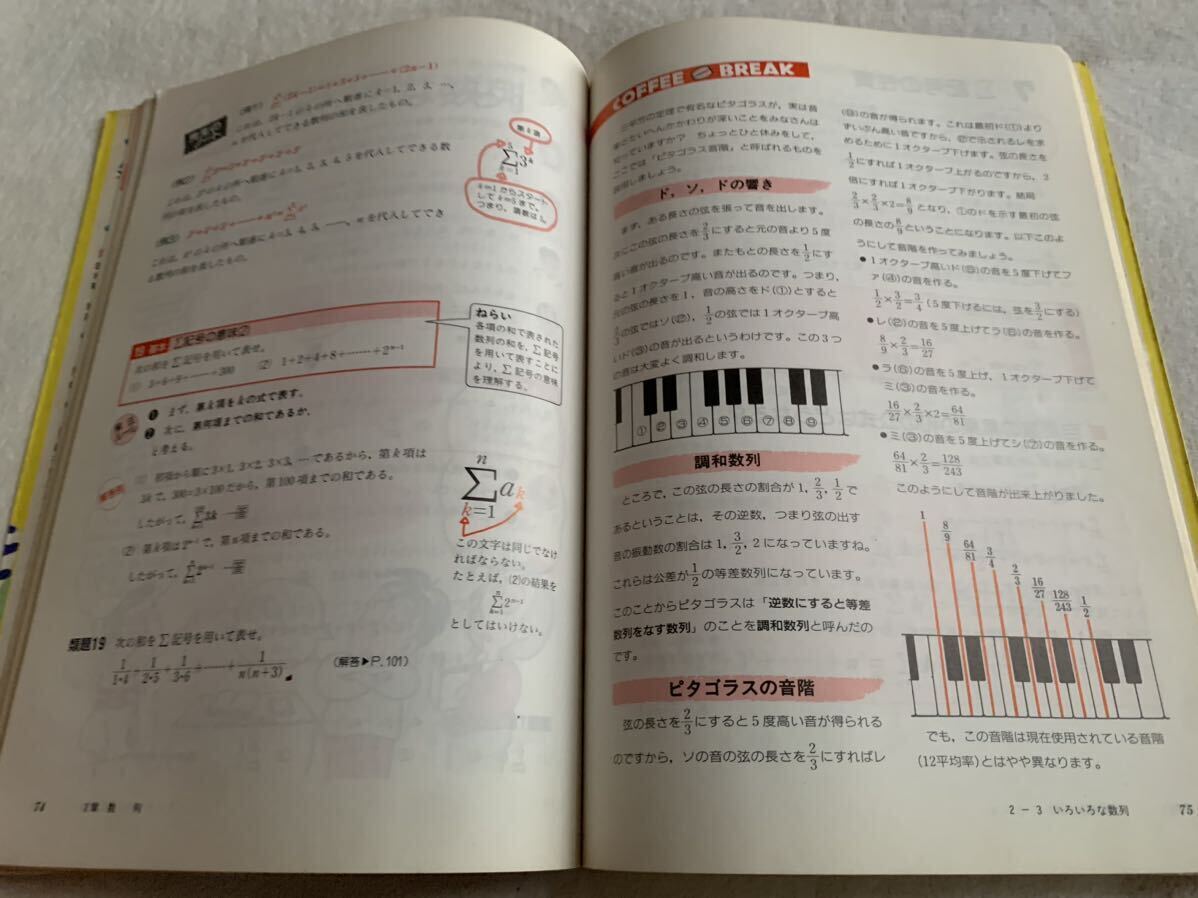 (例1) (2k-1)=1+3+……+(2n-1)
これは，2k-1のkの所へ順番にk=1, 2, 3, …,
nを代入してできる数列の和を表したもの。
を代入してできる数
列の和を表したもの。
nを代入してでき
る数列の和を表したもの。
第k項
5
Σ3ᵏ
k=1
k=1からスタート
してk=5まで。
つまり，項数は5。
19 基本 Σ記号の意味②
次の和をΣ記号を用いて表せ。
(1) 3+6+9+……+300 (2) 1+2+4+8+……+2ⁿ⁻¹
ねらい
各項の和で表された
数列の和を，Σ記号
を用いて表すことに
より，Σ記号の意味
を理解する。
❶ まず，第k項をkの式で表す。
❷ 次に，第何項までの和であるか，
と考える。
(1) 初項から順に3×1, 3×2, 3×3, …であるから，第k項は
3kで，300=3×100だから，第100項までの和である。
したがって，Σ3k …答
(2) 第k項は2ᵏ⁻¹で，第n項までの和である。
したがって，Σ2ᵏ⁻¹ …答
n
Σaₖ
k=1
この文字は同じでなけ
ればならない。
たとえば，(2)の結果を
n
Σ2ⁿ⁻¹
k=1
としてはいけない。
類題19 次の和をΣ記号を用いて表せ。
1/1•4+1/2•5+1/3•6+……+1/n(n+3)
(解答▶P.101)
74 2章 数 列
COFFEE BREAK
三平方の定理で有名なピタゴラスが，実は音
楽とたいへんかかわりが深いことをみなさんは
知っていますか？ ちょっとひと休みをして，
ここでは「ピタゴラス音階」と呼ばれるものを
説明しましょう。
ド，ソ，ドの響き
まず，ある長さの弦を張って音を出します。
次にこの弦の長さを2/3にすると元の音より5度
高い音が出るのです。またもとの長さを1/2にす
ると1オクターブ高い音が出るのです。つまり，
元の弦の長さを1，音の高さをド(①)とすると
2/3の弦ではソ(⑫)，1/2の弦では1オクターブ高
いド(③)の音が出るというわけです。この3つ
の音は大変よく調和します。
①②③④⑤⑥⑦⑧⑨
調和数列
ところで，この弦の長さの割合が1, 2/3, 1/2で
あるということは，その逆数，つまり弦の出す
音の振動数の割合は1, 3/2, 2になっていますね。
これらは公差が1/2の等差数列になっています。
このことからピタゴラスは「逆数にすると等差
数列をなす数列」のことを調和数列と呼んだの
です。
ピタゴラスの音階
弦の長さを2/3にすると5度高い音が得られる
のですから，ソの音の弦の長さを2/3にすればレ
(⑨)の音が得られます。これは最初ド(①)より
ずいぶん高い音ですから，②で示されるレを求
めるために1オクターブ下げます。弦の長さを
1/2にすれば1オクターブ上がるのですから，2
倍にすれば1オクターブ下がります。結局
2/3×2/3×2=8/9となり，①のドを示す最初の弦
の長さの8/9ということになります。以下このよ
うにして音階を作ってみましょう。
●1オクターブ高いド(⑧)の音を5度下げてフ
ァ(④)の音を作る。
1/2×3/2=3/4 (5度下げるには，弦を3/2にする)
●レ(②)の音を5度上げてラ(⑥)の音を作る。
8/9×2/3=16/27
●ラ(⑥)の音を5度上げ，1オクターブ下げて
ミ(③)の音を作る。
16/27×2/3×2=64/81
●ミ(③)の音を5度上げてシ(⑦)の音を作る。
64/81×2/3=128/243
このようにして音階が出来上がりました。
1 8/9 64/81 3/4 2/3 16/27 128/243 1/2
でも，この音階は現在使用されている音階
(12平均率)とはやや異なります。
2-3 いろいろな数列 75